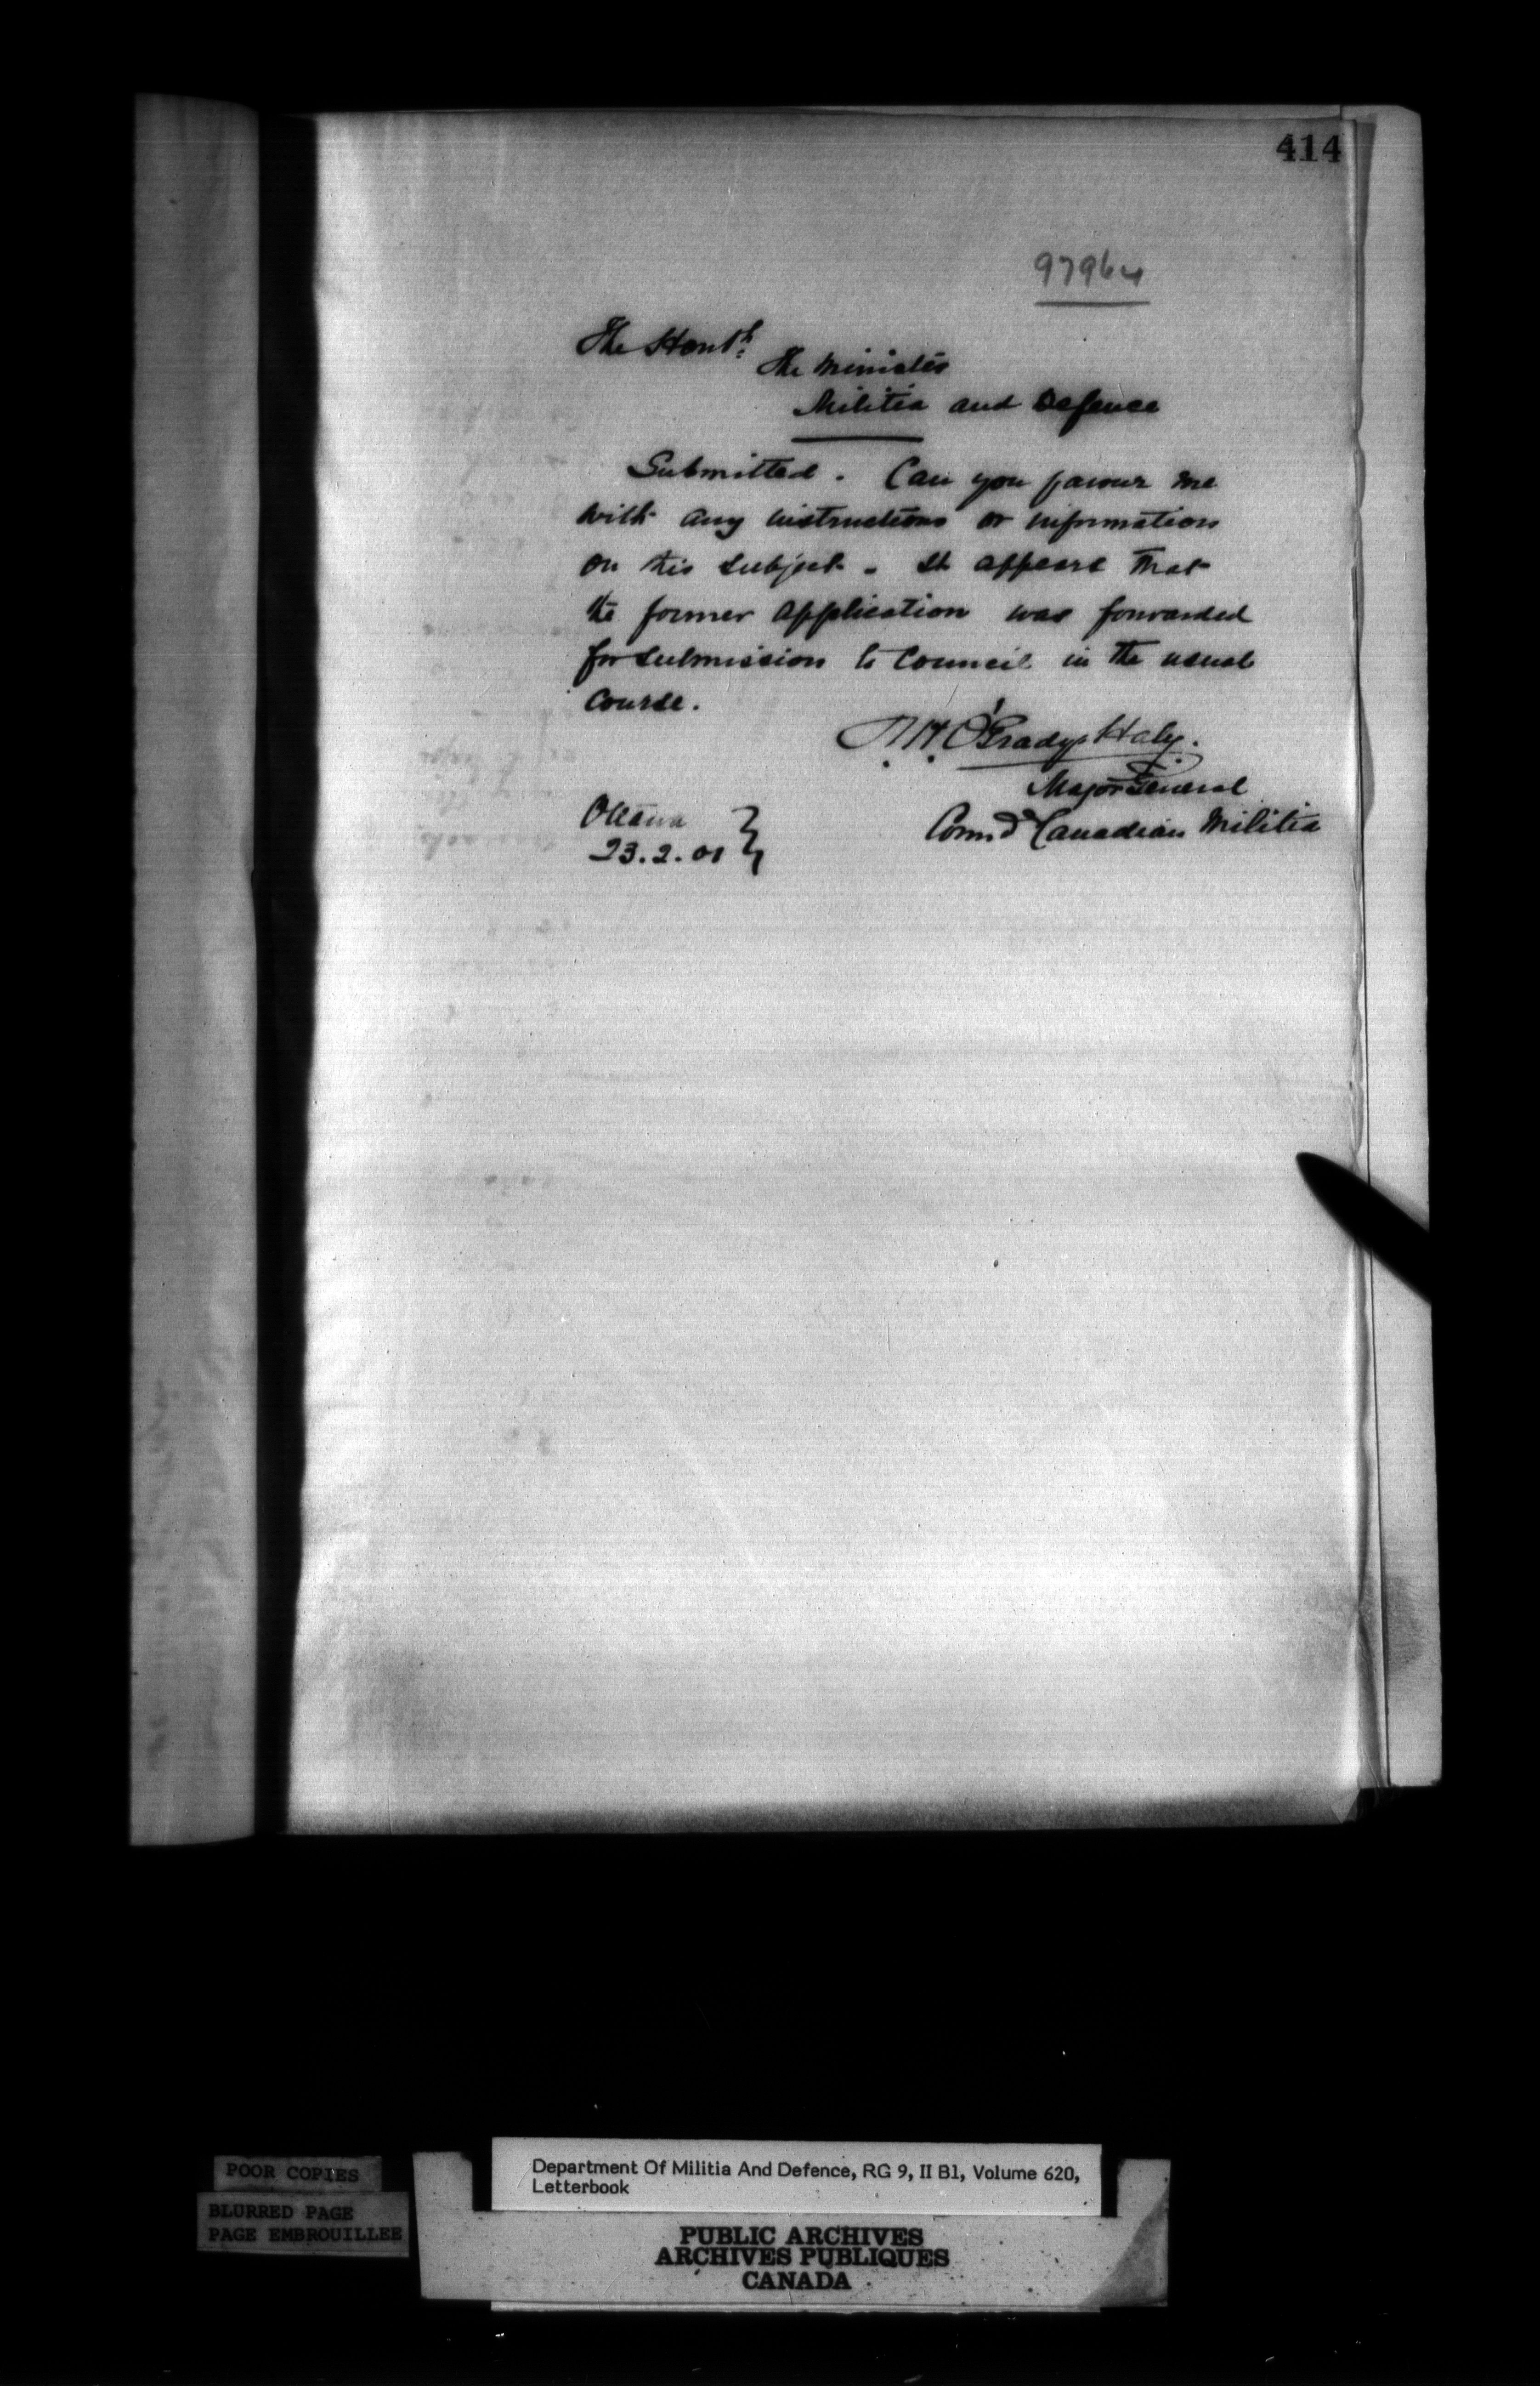 414
97964
The Honble
The Minister
Militia and Defence
Submitted. Can you favour me
with any instructions or information
on this subject. It appears that
the former application was forwarded
for submission to Council in the usual
course.
R. H. O'Grady Haly.
Major General
Commdg Canadian Militia
Ottawa
23.2.01
POOR COPIES
BLURRED PAGE
PAGE EMBROUILLEE
Department Of Militia And Defence, RG 9, II B1, Volume 620,
Letterbook
PUBLIC ARCHIVES
ARCHIVES PUBLIQUES
CANADA